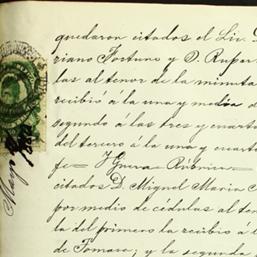 quedaron citados el Lic. D.
riano Fortuno y D. Ruper
las al tenor de la minuta
recibió á la una y media d
segundo á las tres y cuarto
del tercero á la una y cuart
fe = Rúbrica
citados D. Miguel Maria
por medio de cédulas al ten
la del primero la recibió á l
de Tomare; y la segunda
Mayo